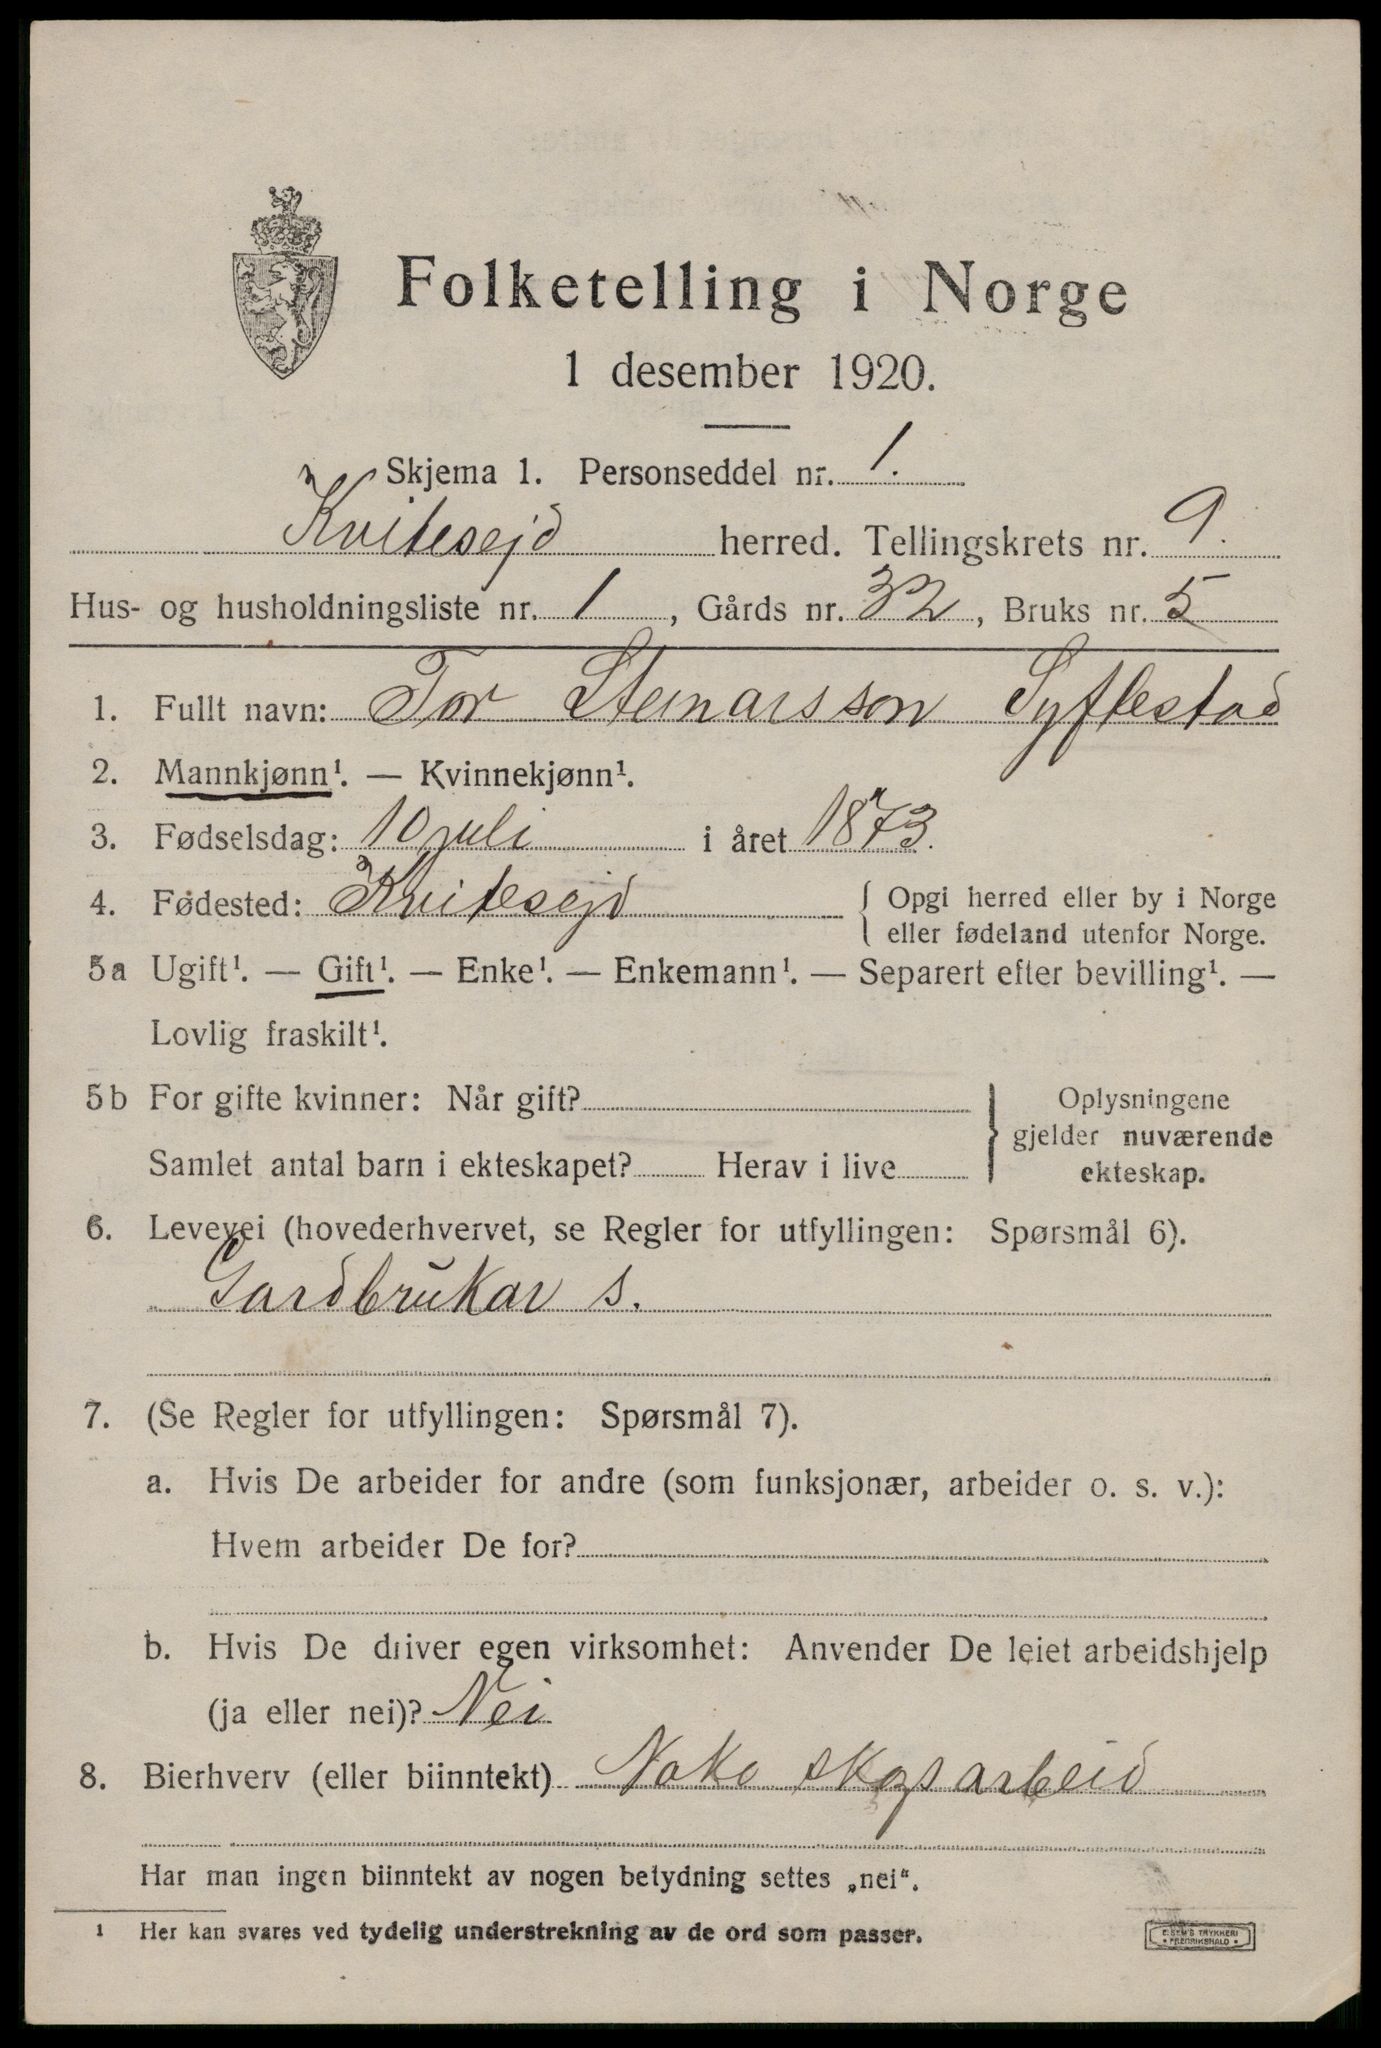 Folketelling i Norge
1 desember 1920.
Skjema 1. Personseddel nr. 1.
Kvitesejd herred. Tellingskrets nr. 9.
Hus- og husholdningsliste nr. 1, Gårds nr. 32, Bruks nr. 5
1. Fullt navn: Tor Steinarsson Syftestad
2. Mannkjønn¹. — Kvinnekjønn¹.
3. Fødselsdag: 10 juli i året 1873.
4. Fødested: Kvitesejd { Opgi herred eller by i Norge
eller fødeland utenfor Norge.
5a Ugift¹. — Gift¹. — Enke¹. — Enkemann¹. — Separert efter bevilling¹. —
Lovlig fraskilt¹.
5b For gifte kvinner: Når gift?
Samlet antal barn i ekteskapet? Herav i live
} Oplysningene
gjelder nuværende
ekteskap.
6. Levevei (hovederhvervet, se Regler for utfyllingen: Spørsmål 6).
Gardbrukar s.
7. (Se Regler for utfyllingen: Spørsmål 7).
a. Hvis De arbeider for andre (som funksjonær, arbeider o. s. v.):
Hvem arbeider De for?
b. Hvis De driver egen virksomhet: Anvender De leiet arbeidshjelp
(ja eller nei)? Nei
8. Bierhverv (eller biinntekt) Noko skogsarbeid
Har man ingen biinntekt av nogen betydning settes „nei“.
¹ Her kan svares ved tydelig understrekning av de ord som passer.
E. SEM'S TRYKKERI
• FREDRIKSHALD •